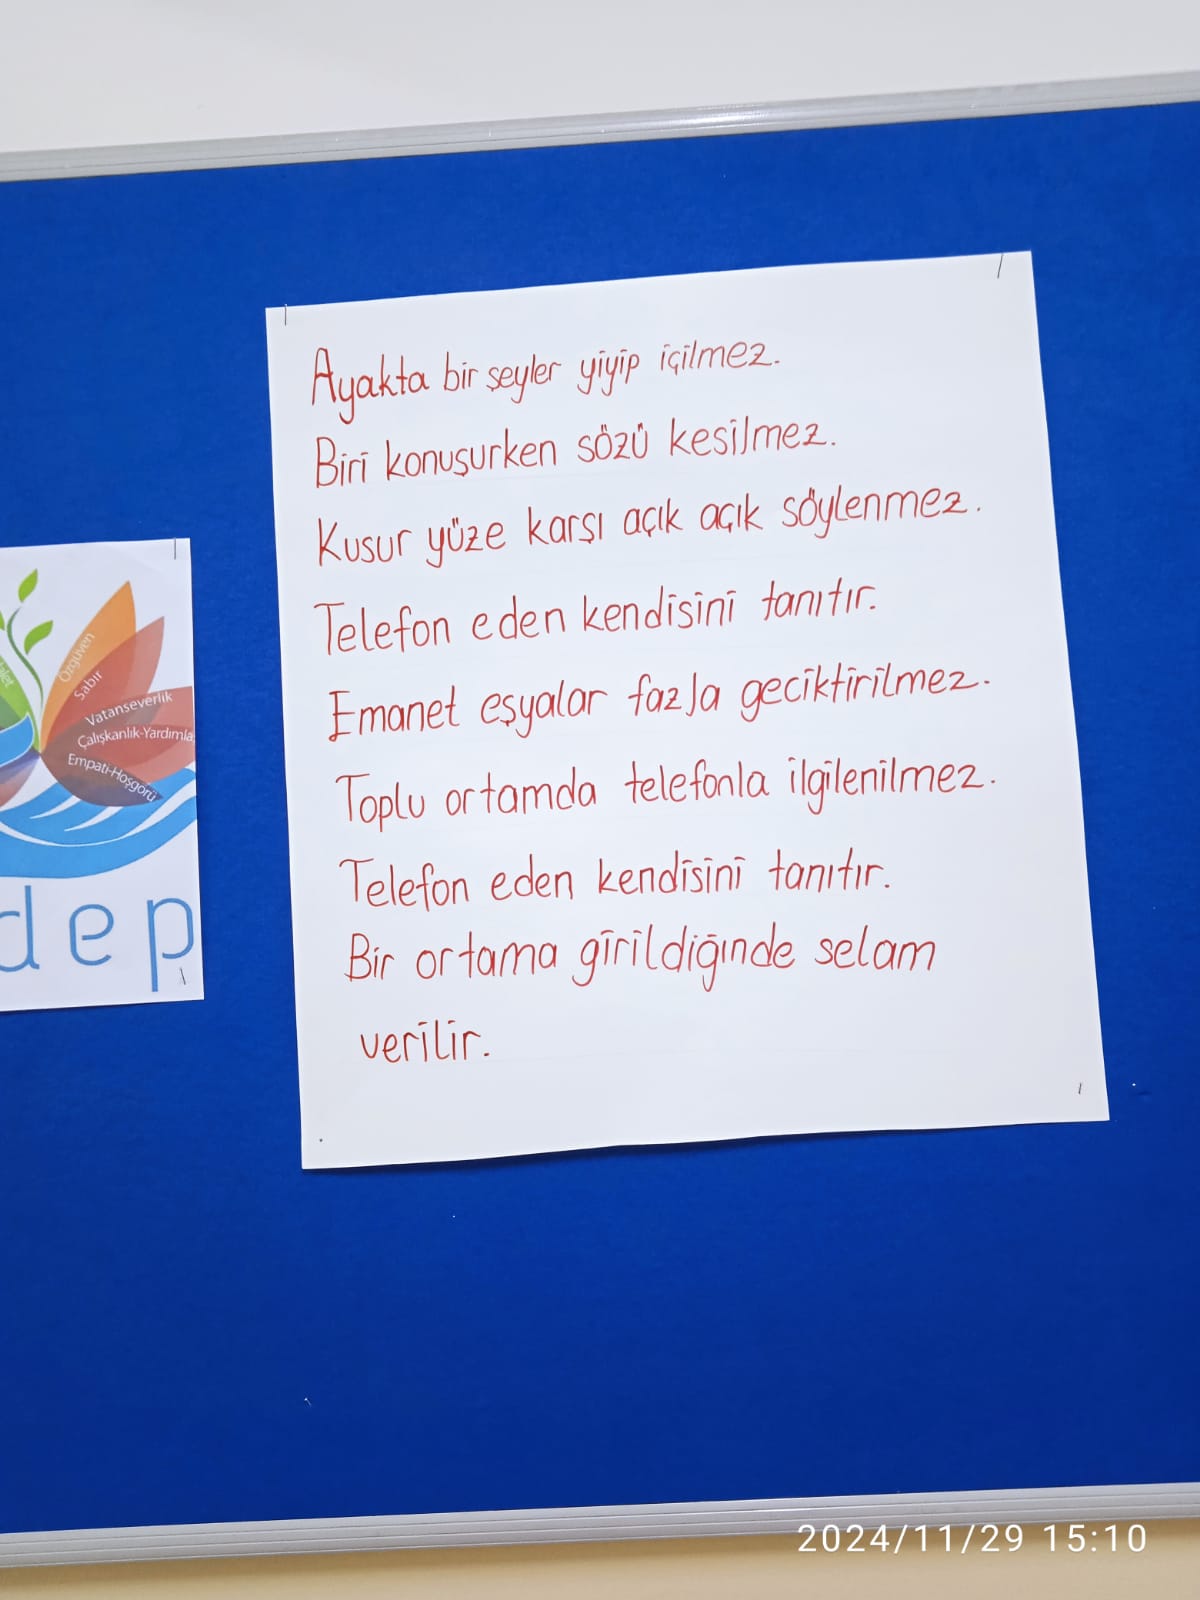 Ayakta bir şeyler yiyip içilmez.
Biri konuşurken sözü kesilmez.
Kusur yüze karşı açık açık söylenmez.
Telefon eden kendisini tanıtır.
Emanet eşyalar fazla geciktirilmez.
Toplu ortamda telefonla ilgilenilmez.
Telefon eden kendisini tanıtır.
Bir ortama girildiğinde selam
verilir.
Özgüven
Sabır
Vatanseverlik
Çalışkanlık-Yardımla
Empati-Hoşgörü
dep
2024/11/29 15:10